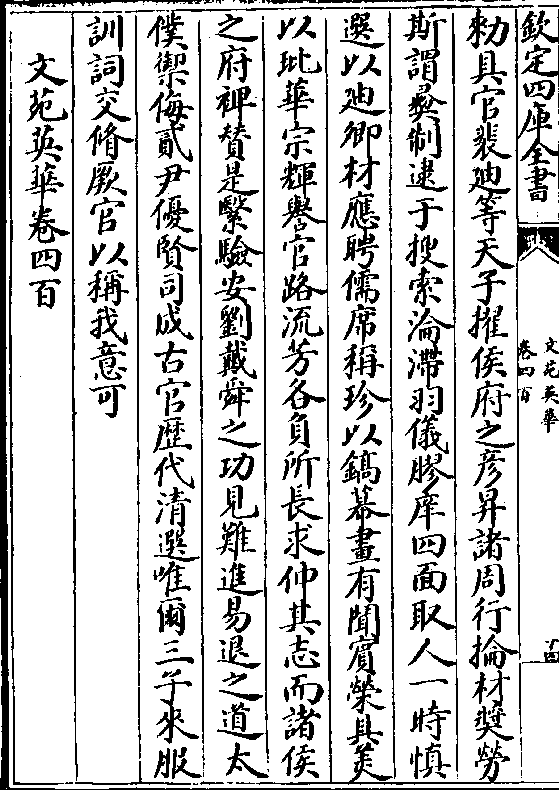 欽定四庫全書
文苑英華
卷四百
十四
勑具官裴廸等天子擢侯府之彦昇諸周行掄材奬勞
斯謂彞制逮于搜索淪滯羽儀膠庠四面取人一時慎
選以廸卿材應聘儒席稱珍以鎬幕畫有聞賔榮具美
以玭華宗輝譽官路流芳各負所長求伸其志而諸侯
之府禆賛是繫驗安劉戴舜之功見難進易退之道太
僕禦侮貳尹優賢司成古官歴代清選唯爾三子來服
訓詞交脩厥官以稱我意可
文苑英華卷四百